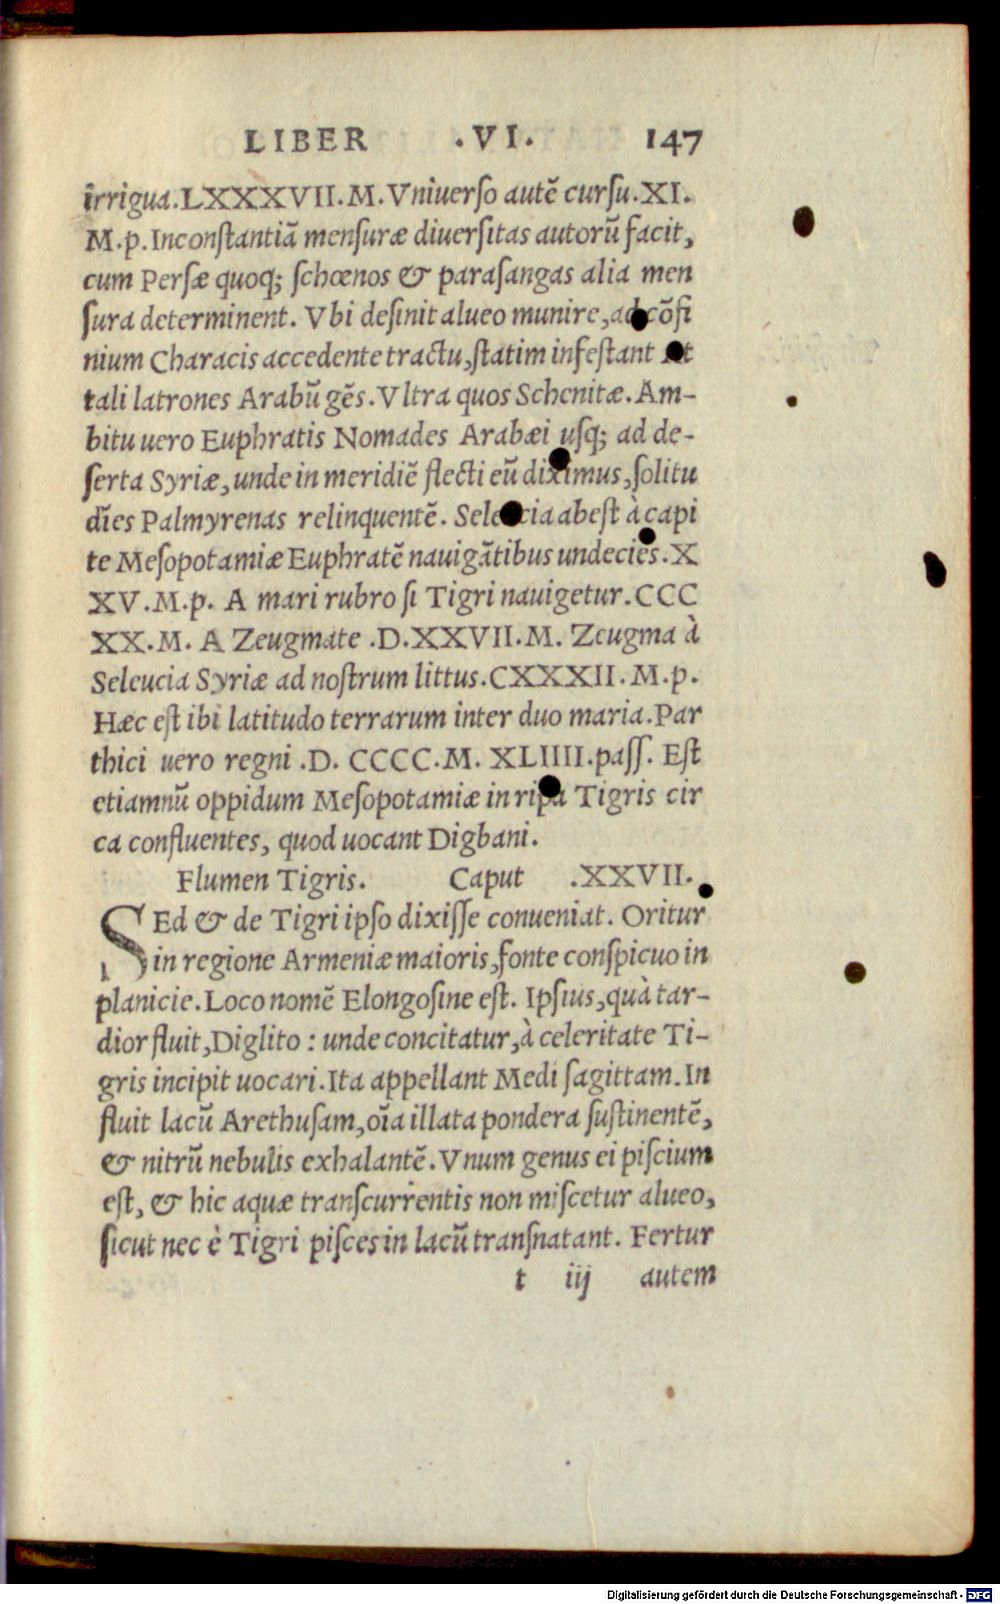 LIBER .VI. 147
irrigua.LXXXVII.M.Vniuerſo autē curſu.XI.
M.p.Inconſtantiā menſuræ diuerſitas autorū facit,
cum Perſæ quoq; ſchœnos & paraſangas alia men
ſura determinent. Vbi deſinit alueo munire,ad cōfi
nium Characis accedente tractu,ſtatim infeſtant
tali latrones Arabū gēs.Vltra quos Schenitæ.Am-
bitu uero Euphratis Nomades Arabæi uſq; ad de-
ſerta Syriæ,unde in meridiē flecti eū diximus,ſolitu
dīes Palmyrenas relinquentē. Seleucia abeſt à capi
te Meſopotamiæ Euphratē nauigātibus undecies.X
XV.M.p. A mari rubro ſi Tigri nauigetur.CCC
XX.M. A Zeugmate .D.XXVII.M. Zeugma à
Seleucia Syriæ ad noſtrum littus.CXXXII.M.p.
Hæc eſt ibi latitudo terrarum inter duo maria.Par
thici uero regni .D. CCCC.M. XLIIII.paſſ. Eſt
etiamnū oppidum Meſopotamiæ in ripa Tigris cir
ca confluentes, quod uocant Digbani.
Flumen Tigris. Caput .XXVII.
SEd & de Tigri ipſo dixiſſe conueniat. Oritur
in regione Armeniæ maioris,fonte conſpicuo in
planicie.Loco nomē Elongoſine eſt. Ipſius,quà tar-
dior fluit,Diglito : unde concitatur,à celeritate Ti-
gris incipit uocari.Ita appellant Medi ſagittam.In
fluit lacū Arethuſam,oīa illata pondera ſuſtinentē,
& nitrū nebulis exhalantē.Vnum genus ei piſcium
eſt, & hic aquæ tranſcurrentis non miſcetur alueo,
ſicut nec è Tigri piſces in lacū tranſnatant. Fertur
t iij autem
Digitalisierung gefördert durch die Deutsche Forschungsgemeinschaft - DFG